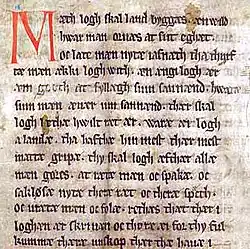 Mæth logh skal land byggæs. æn wild
hwar man orwæs at sit eghet
oc late mæn nytæ iafnæth tha thyrft
tæ mæn ækki logh with. æn engi logh ær
æm goth at fyllægh sum sannænd. hwaræ
sum mæn æuær um sannænd. thær skal
logh letæ hwilt ræt ær. waræ æi logh
a landæ. tha hafthæ hin mest thær mest
mattæ gripæ. thy skal logh æftær allæ
mæn gøræs. at rætæ mæn oc spakæ. oc
saklösæ nytæ theræ ræt oc theræ spækh.
oc uretæ mæn oc folæ. rethæs thæt thær i
loghæn ær skriuæn oc thoræ æi for thy ful
kumnæ theræ unskop thær thæ haue i